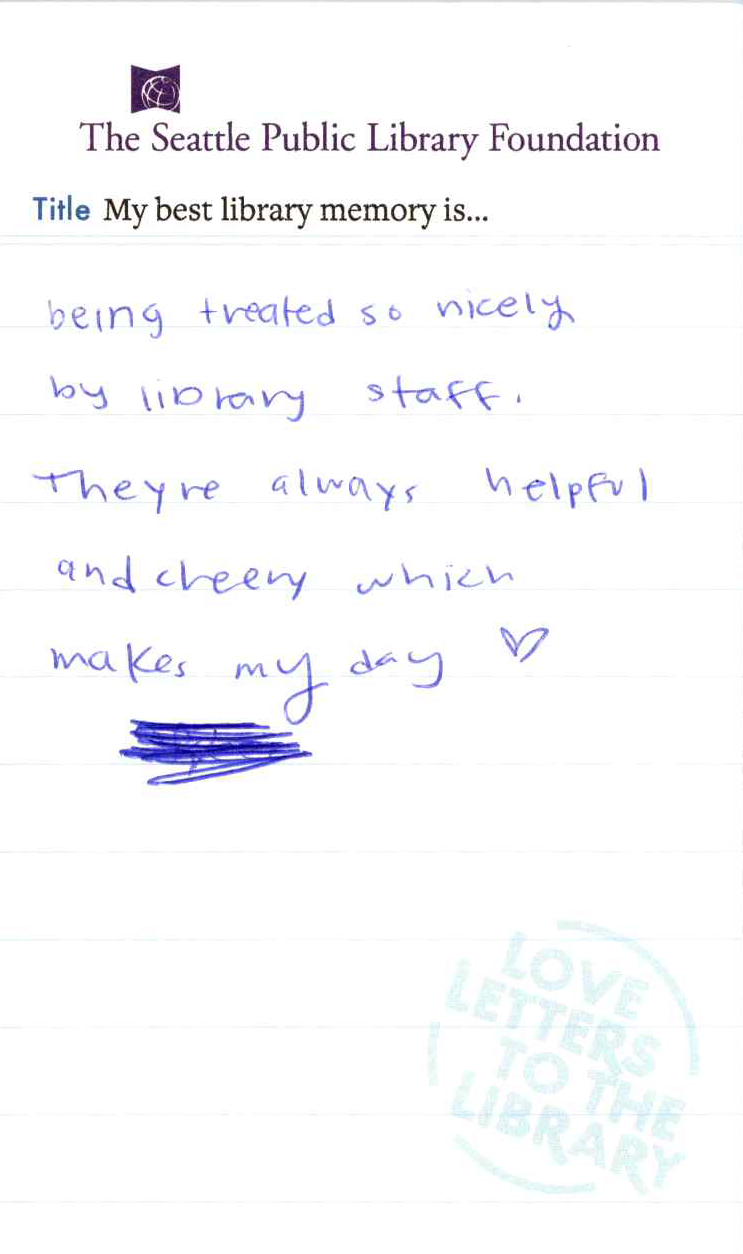 The Seattle Public Library Foundation
Title My best library memory is...
being treated so nicely
by library staff.
Theyre always helpful
and cheery which
makes my day ♡
LOVE
LETTERS
TO THE
LIBRARY